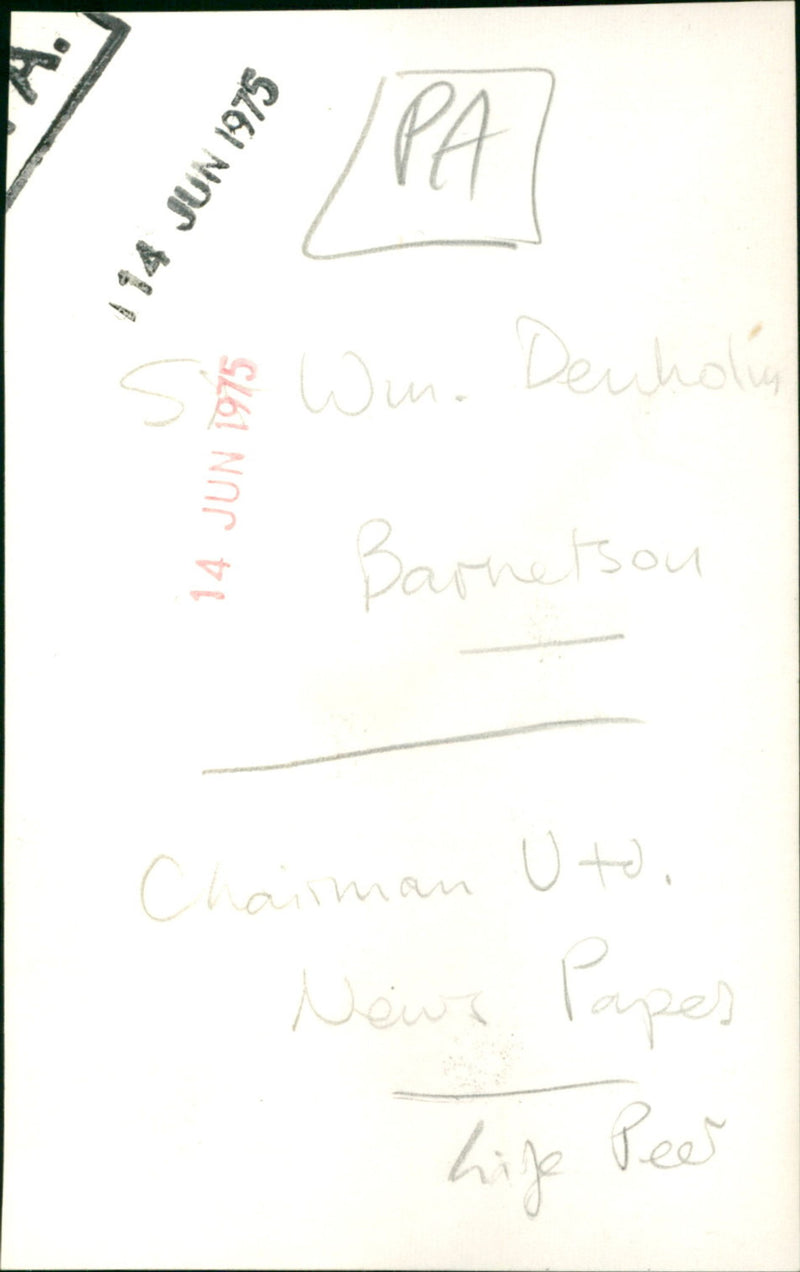 A.
14 JUN 1975
PA
Sir Wm. Denholm
14 JUN 1975
Barnetson
Chairman Utd.
News Papers
Life Peer